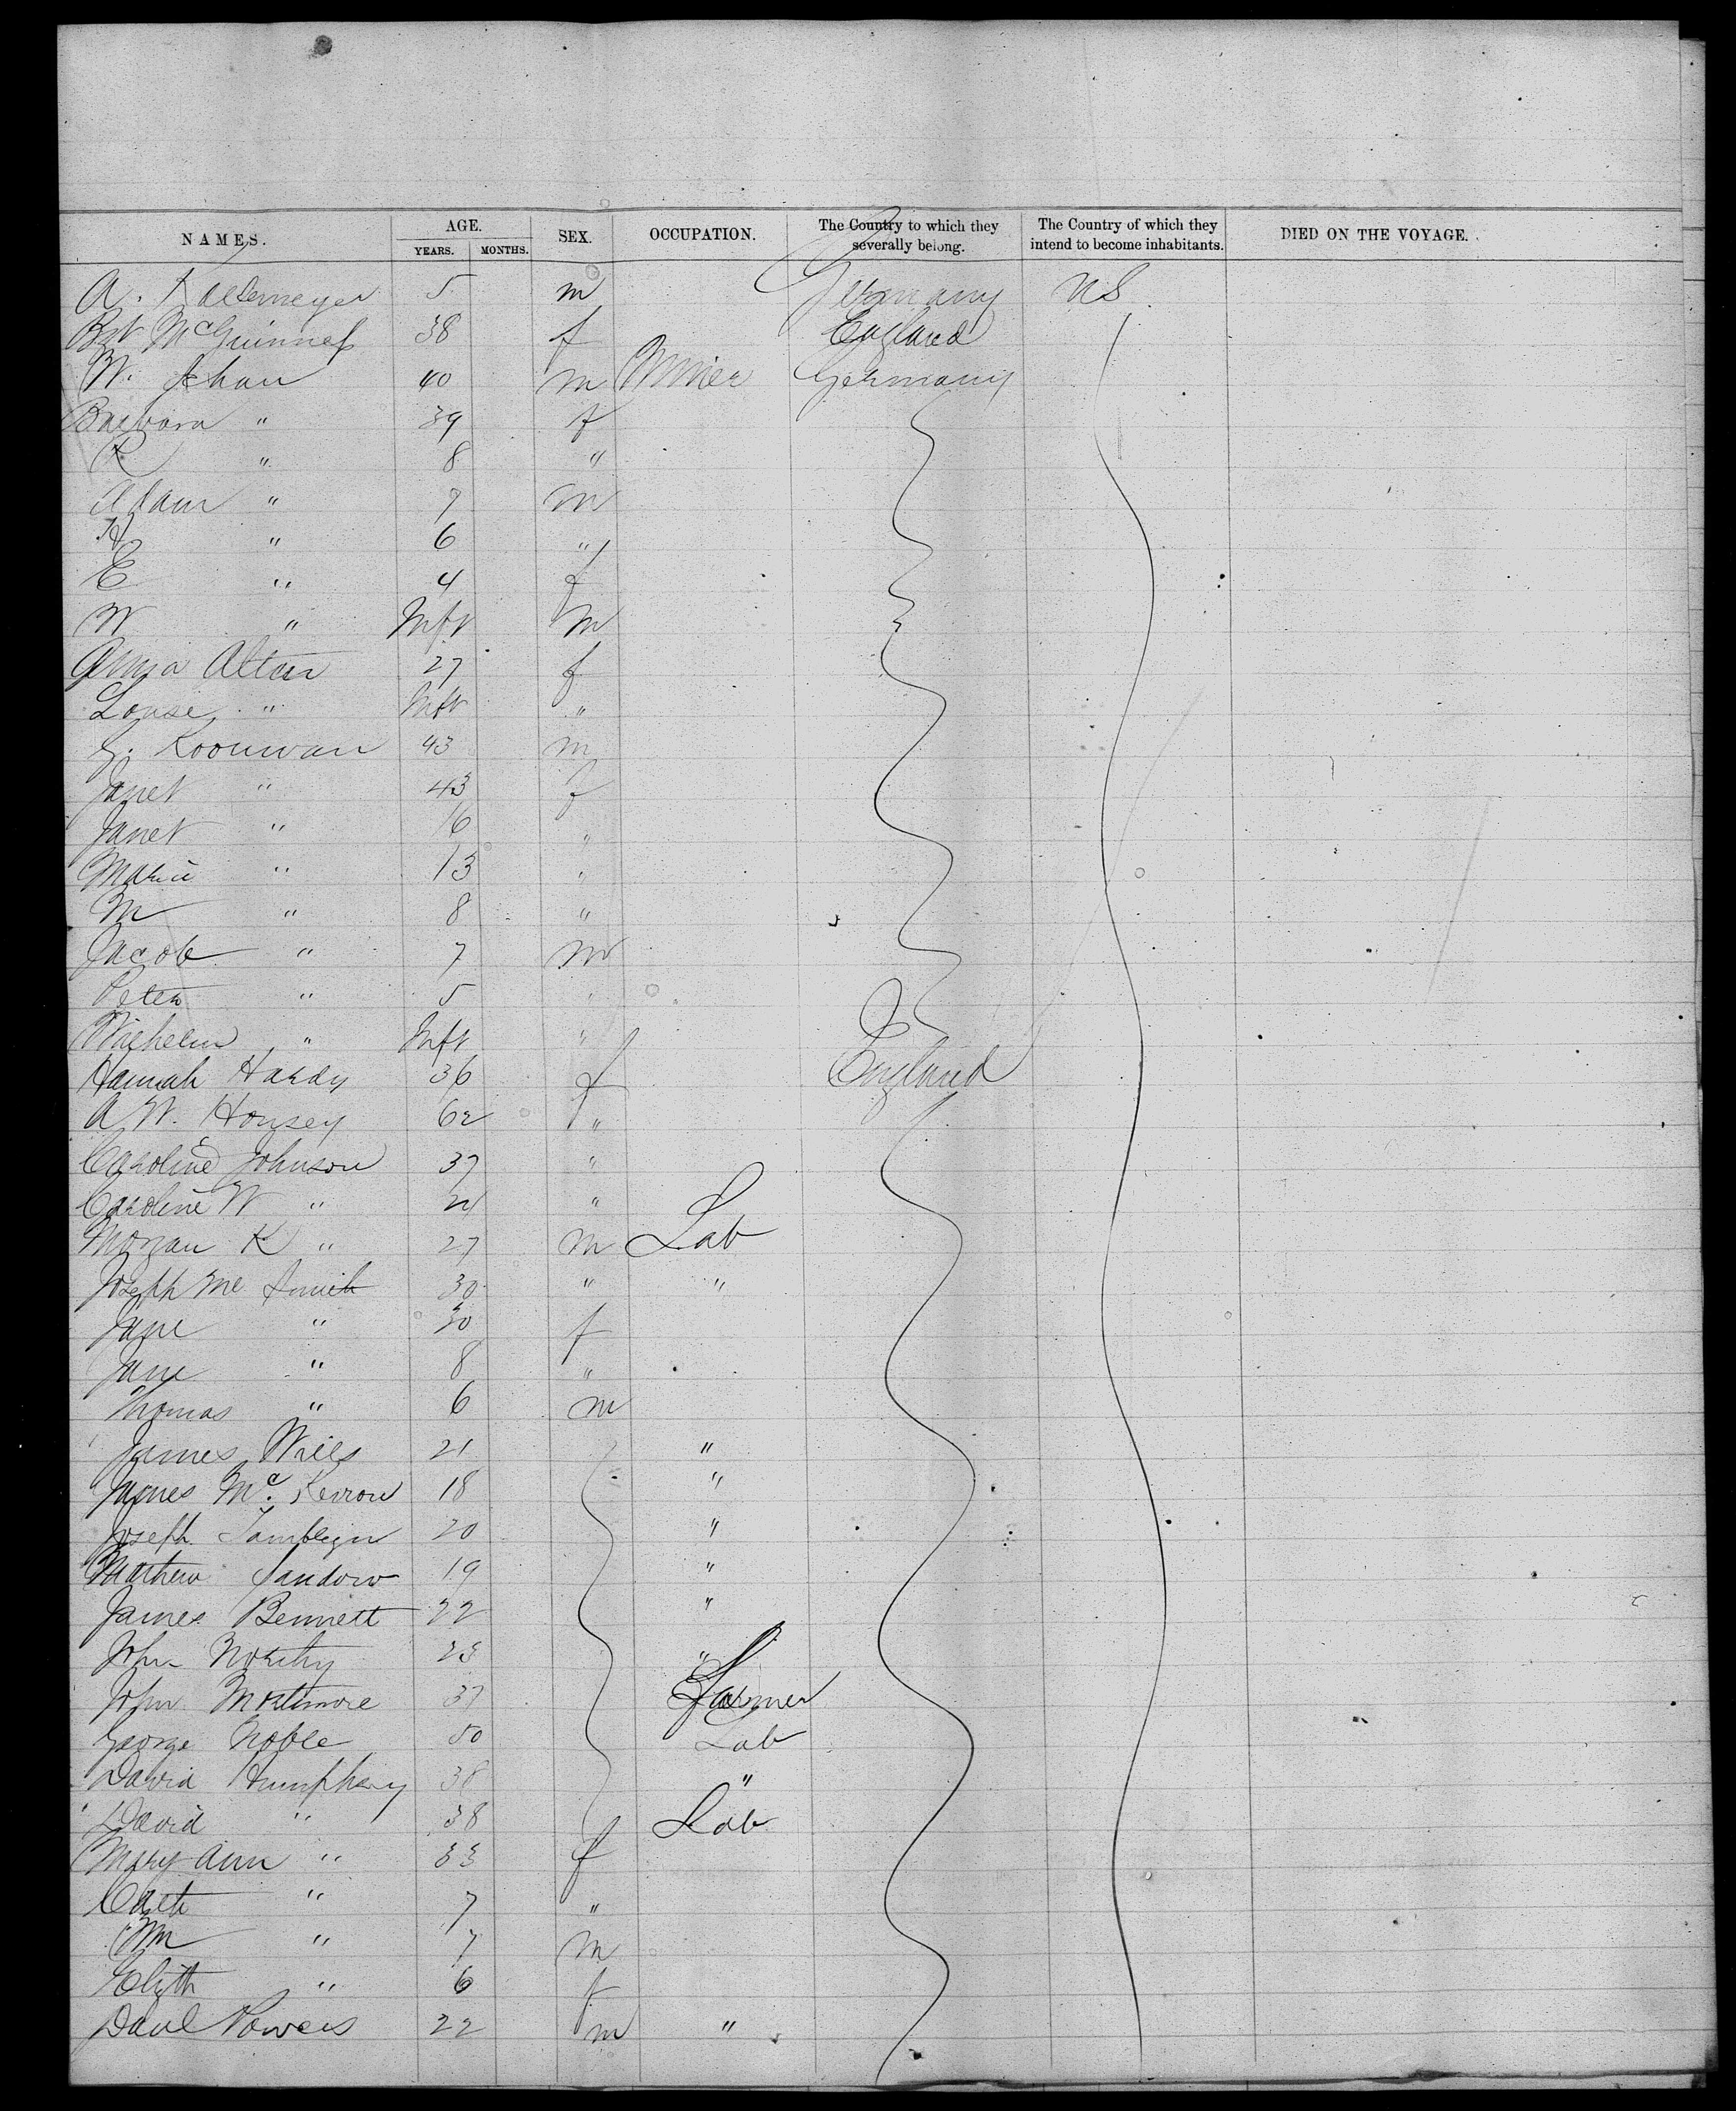 NAMES. AGE. SEX. OCCUPATION. The Country to which they severally belong. The Country of which they intend to become inhabitants. DIED ON THE VOYAGE.
YEARS. MONTHS.
A. 5 m Germany US
McGuinness 38 f England
W. Schan 40 m Miner Germany
Barbara " 39 f
R " 8 "
Adam " 7 m
H " 6 "
E " 4 f
W " Inft m
Anna 27 f
Louise " Inft "
G. Koouwan 43 m
Janet " 43 f
Janet " 16 "
Marie " 13 "
M " 8 "
Jacob " 7 m
Peter " 5 "
Wilhelm " Inft "
Hannah Hardy 36 f England
A W. Housey 62 "
Caroline Johnson 37 "
Caroline W " "
Morgan K " 27 m Lab
Joseph Mc Smith 30 " "
Jane " 30 f
Jane " 8 "
Thomas " 6 m
James Wills 21 "
James Mc Kerrow 18 "
Joseph Tamblyn 20 "
Mathew Sandow 19 "
James Bennett 22 "
John Northy 23 "
John Mortimore 37 Farmer
George Noble 50 Lab
David Humphery 38 "
David " 38 Lab
Mary Ann " 33 f
Cath " 7 "
Wm " 7 m
Elizth " 6 f
Danl Powers 22 m "